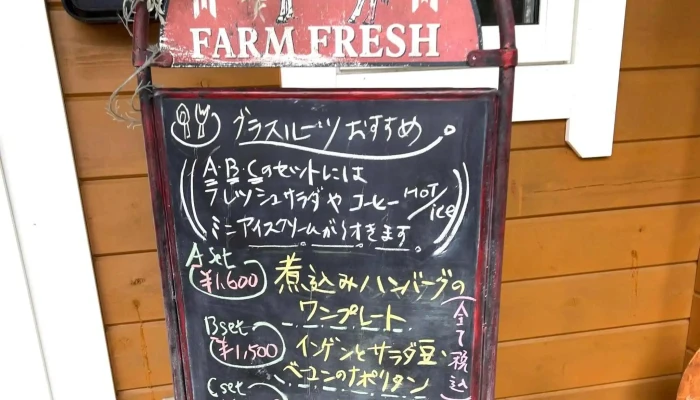 FARM FRESH
グラスルーツおすすめ
A・B・Cのセットには
フレッシュサラダや コーヒーHOT/ice
ミニアイスクリームが付きます
A set
¥1,600
煮込みハンバーグの
ワンプレート
B set
¥1,500
インゲンとサラダ豆・
ベーコンのナポリタン
(全て税込)
C set